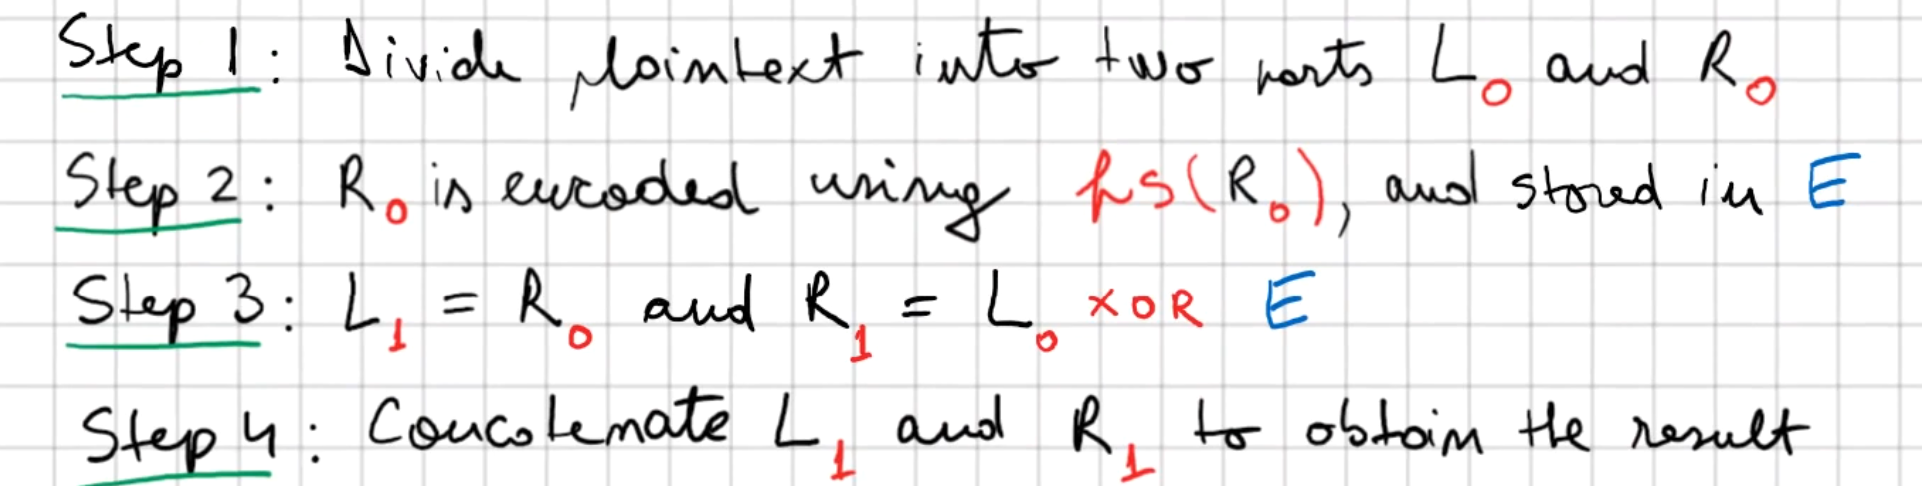 Step 1: Divide plaintext into two parts L₀ and R₀
Step 2: R₀ is encoded using fs(R₀), and stored in E
Step 3: L₁ = R₀ and R₁ = L₀ XOR E
Step 4: Concatenate L₁ and R₁ to obtain the result